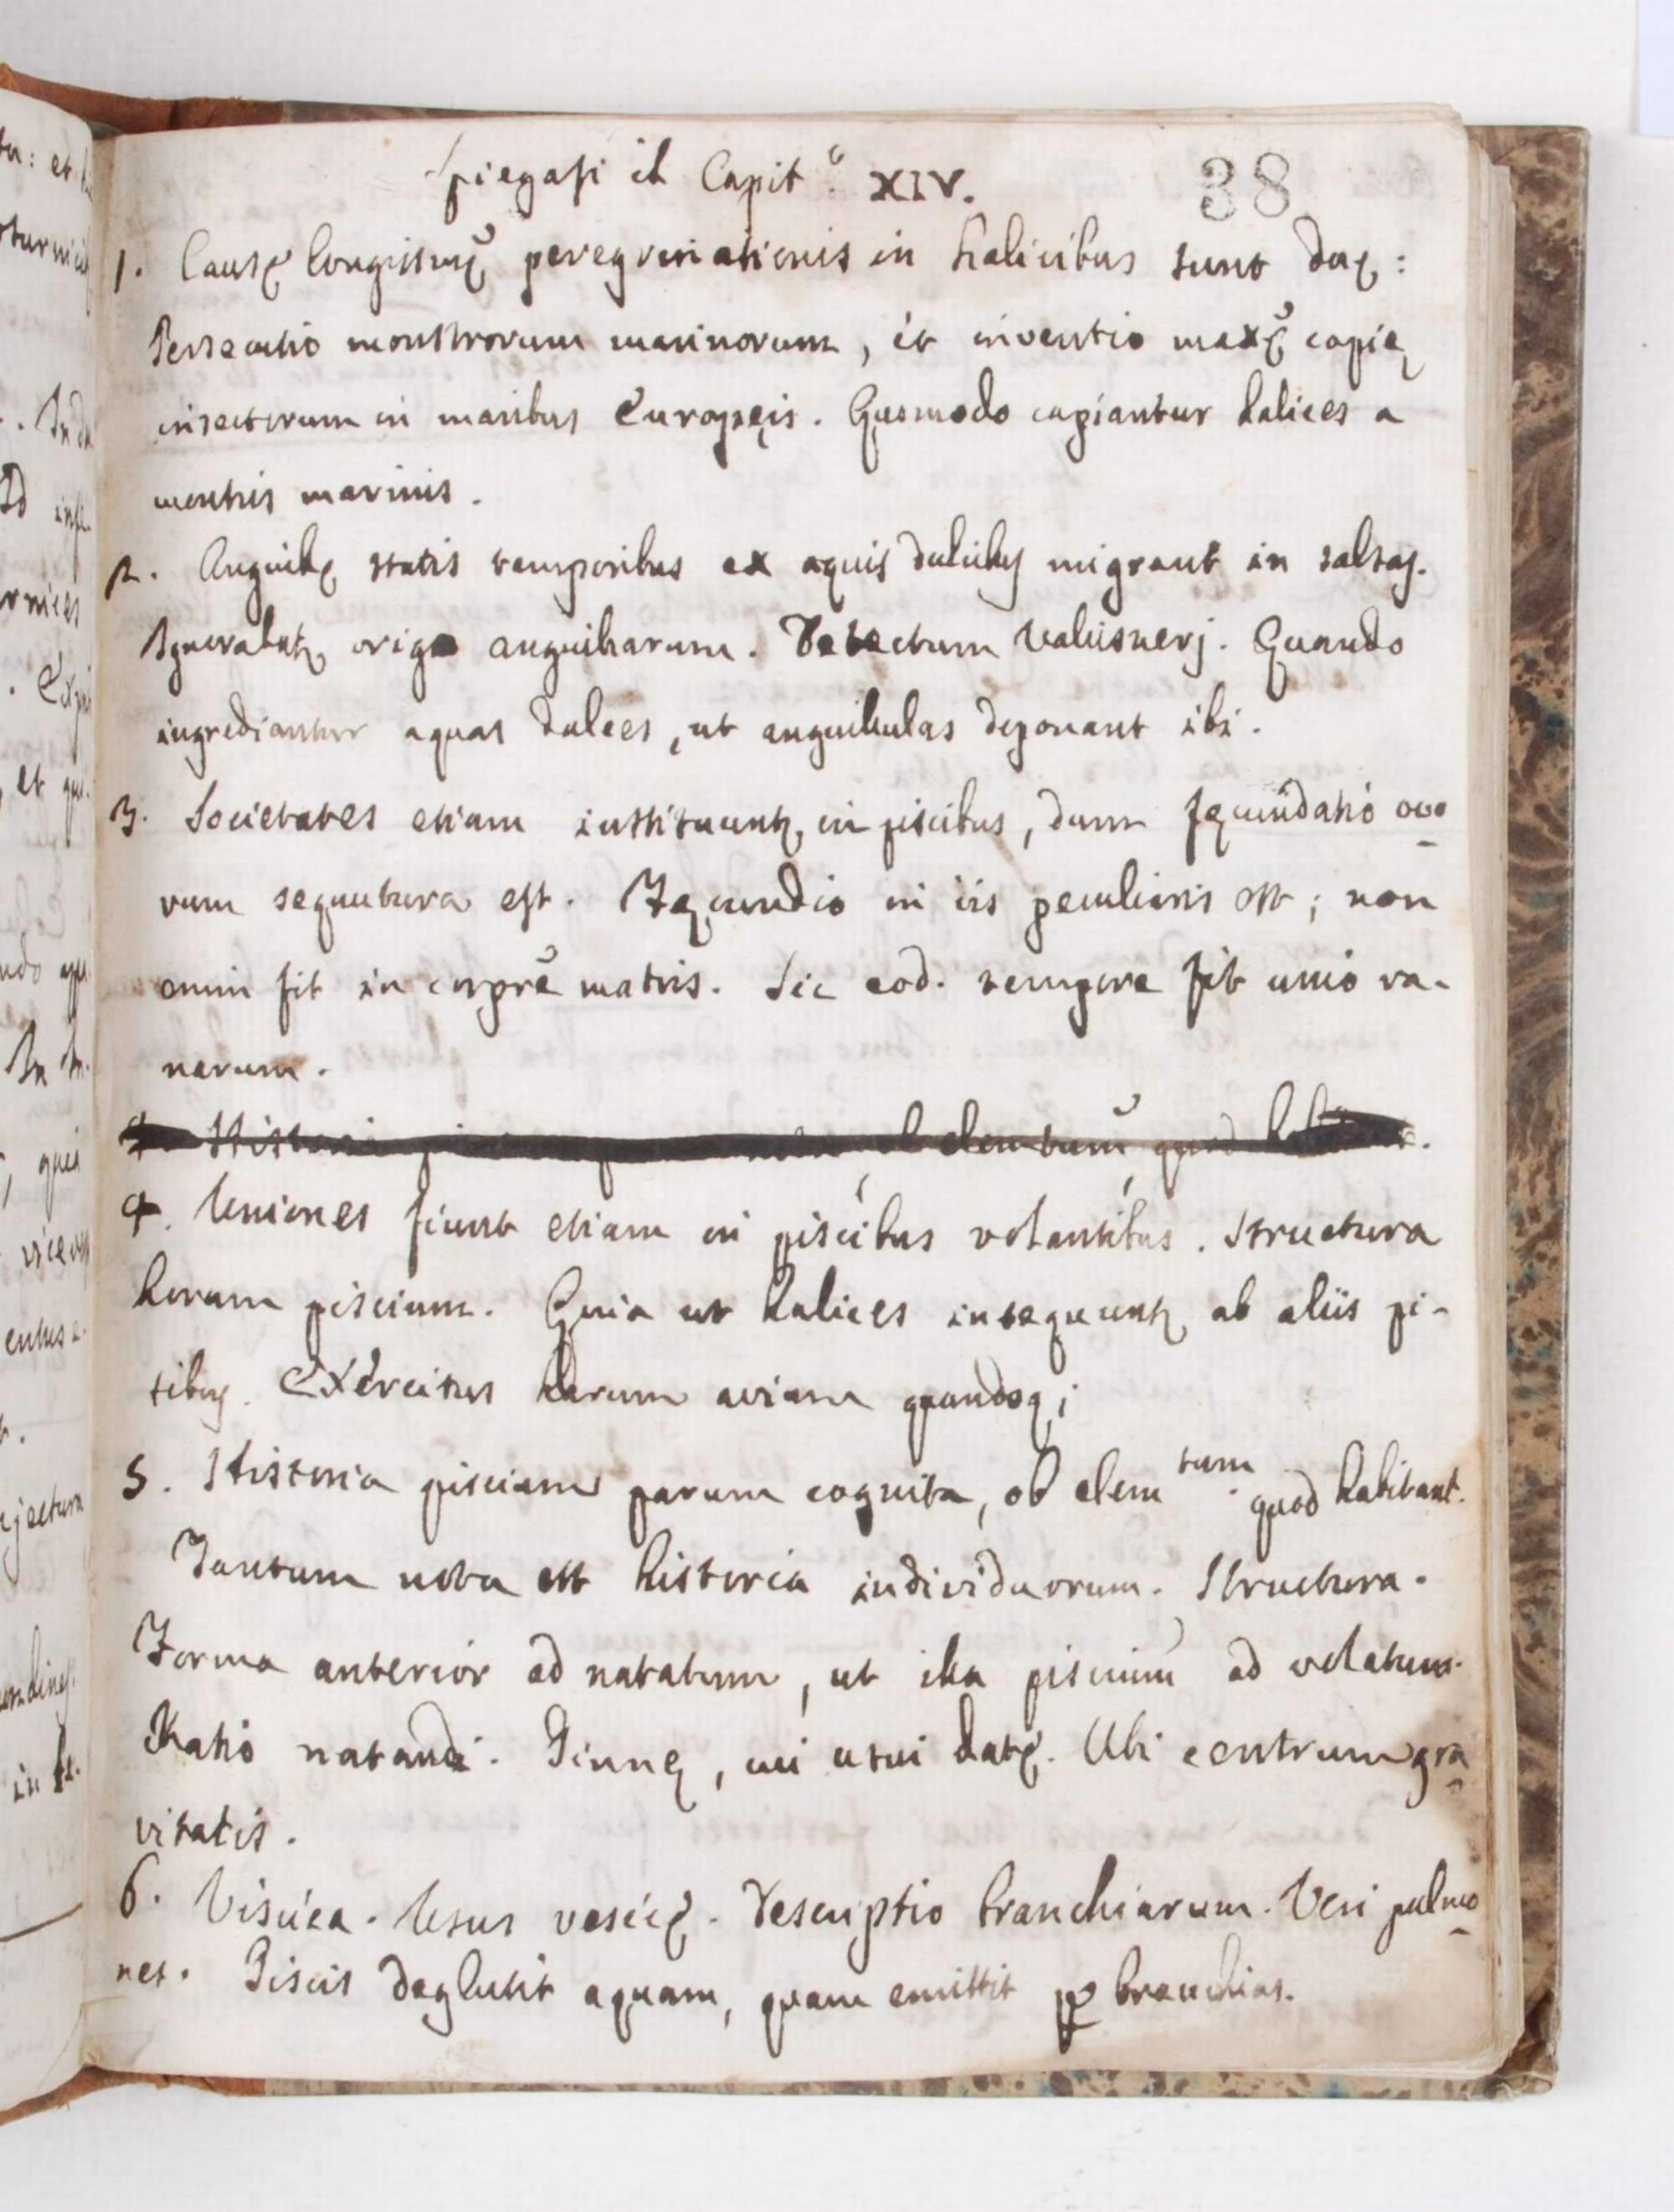 Spiegasi il Capit.º XIV. 38
1. Causę longissimę peregrinationis in halicibus sunt duę:
Persecutio monstrorum marinorum, et inventio maxę copię
insectorum in maribus Europęis. Quomodo capiantur halices a
monstris marinis.
2. Anguillę statis temporibus ex aquis dulcibus migrant in salsas.
Ignorabatur origo anguillarum. Detectum Valisnerj. Quando
ingrediantur aquas dulces, ut anguillulas deponant ibi.
3. Societates etiam instituuntur in piscibus, dum fęcundatio ovo
rum sequutura est. Fęcundio in iis peculiaris est; non
enim fit in corpre matris. Sic eod. tempore fit unio ra-
narum.
4. Historia ob elemtum quod
4. Uniones fiunt etiam in piscibus volantibus. Structura
horum piscium. Quia ut halices insequuntur ab aliis pi-
scibus. Exercitus harum avium quandoq;
5. Historia piscium parum cognita, ob elemtum quod habitant.
Tantum nota est historia individuorum. Structura.
Forma anterior ad natatum, ut illa piscium ad volatum.
Ratio natandi. Pinnę, cui usui datę. Ubi centrum gra
vitatis.
6. Viscera. Usus vesicę. Descriptio branchiarum. Veri pulmo
nes. Piscis deglutit aquam, quam emittit per branchias.